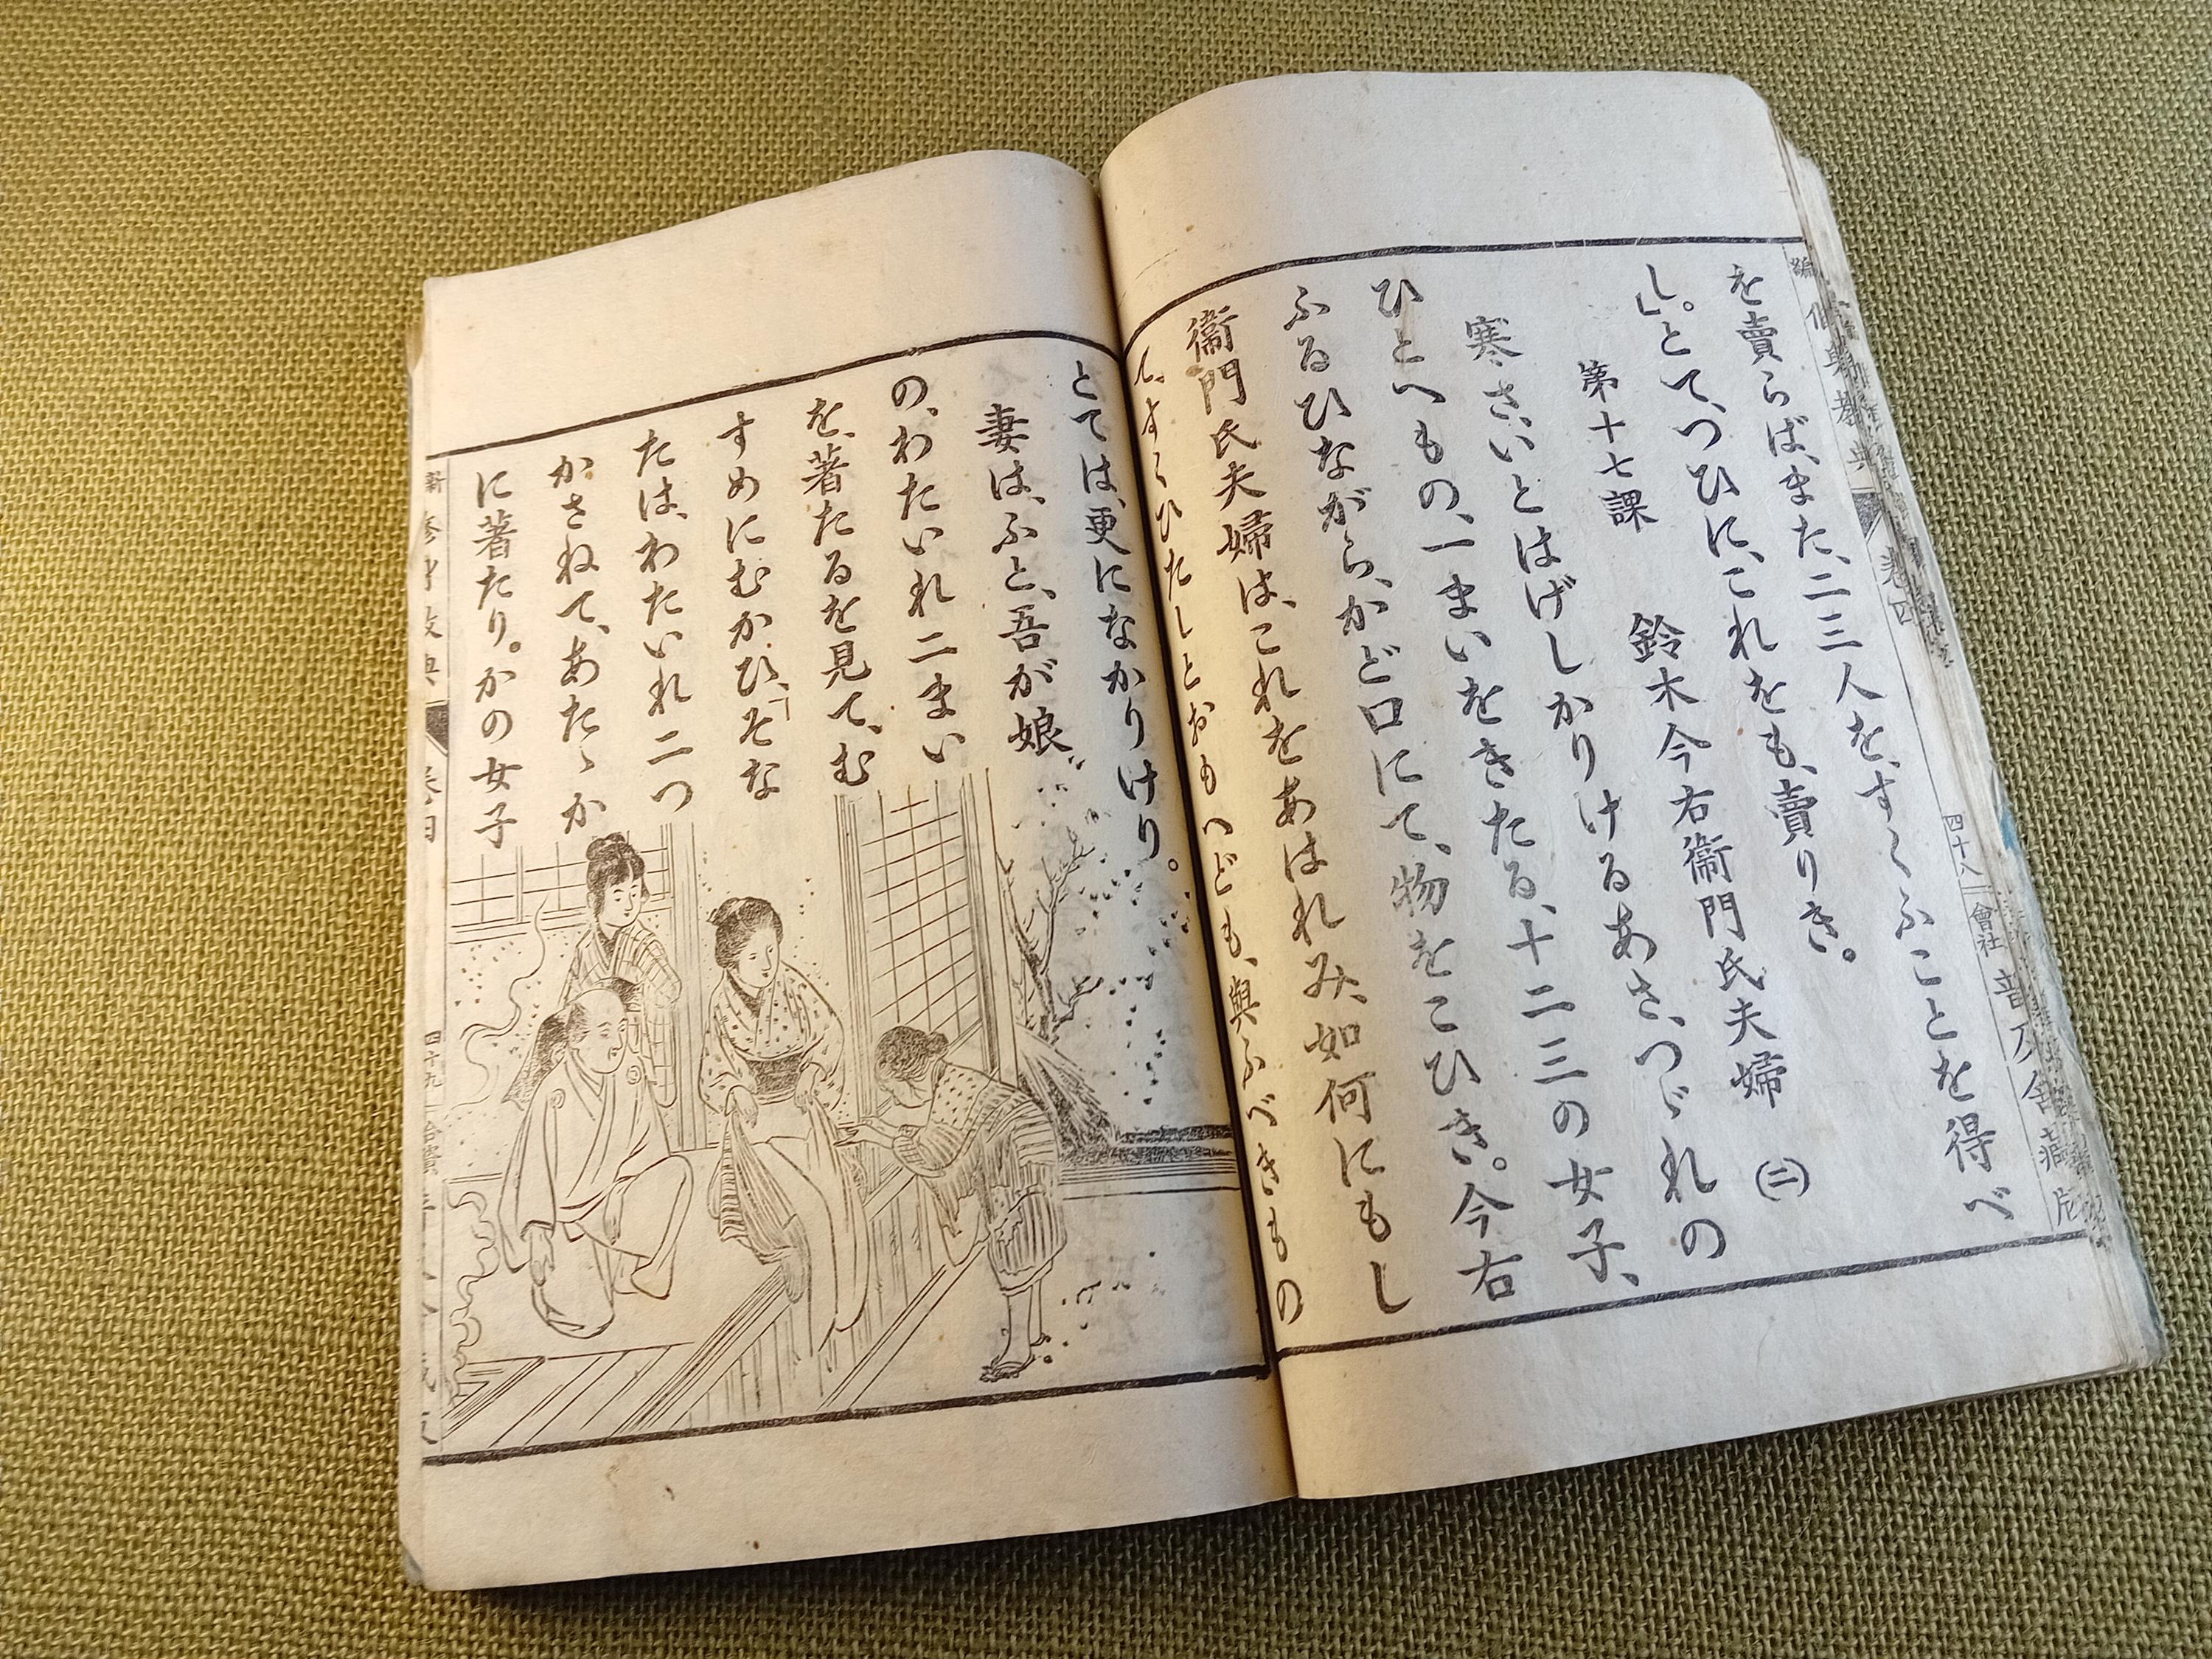 を賣らば、また、二三人を、すくふことを得べ
し。」とて、つひに、これをも、賣りき。
第十七課 鈴木今右衞門氏夫婦 (二)
寒さ、いとはげしかりけるあさ、つゞれの
ひとへもの、一まいをきたる、十二三の女子、
ふるひながら、かど口にて、物をこひき。今右
衞門氏夫婦は、これをあはれみ、如何にもし
て、すくひたしとおもへども、與ふべきもの
とては、更になかりけり。
妻は、ふと、吾が娘
の、わたいれ二まい
を、著たるを見て、む
すめにむかひ、「そな
たは、わたいれ二つ
かさねて、あたゝか
に著たり。かの女子
卷四
四十八
會社
四十九